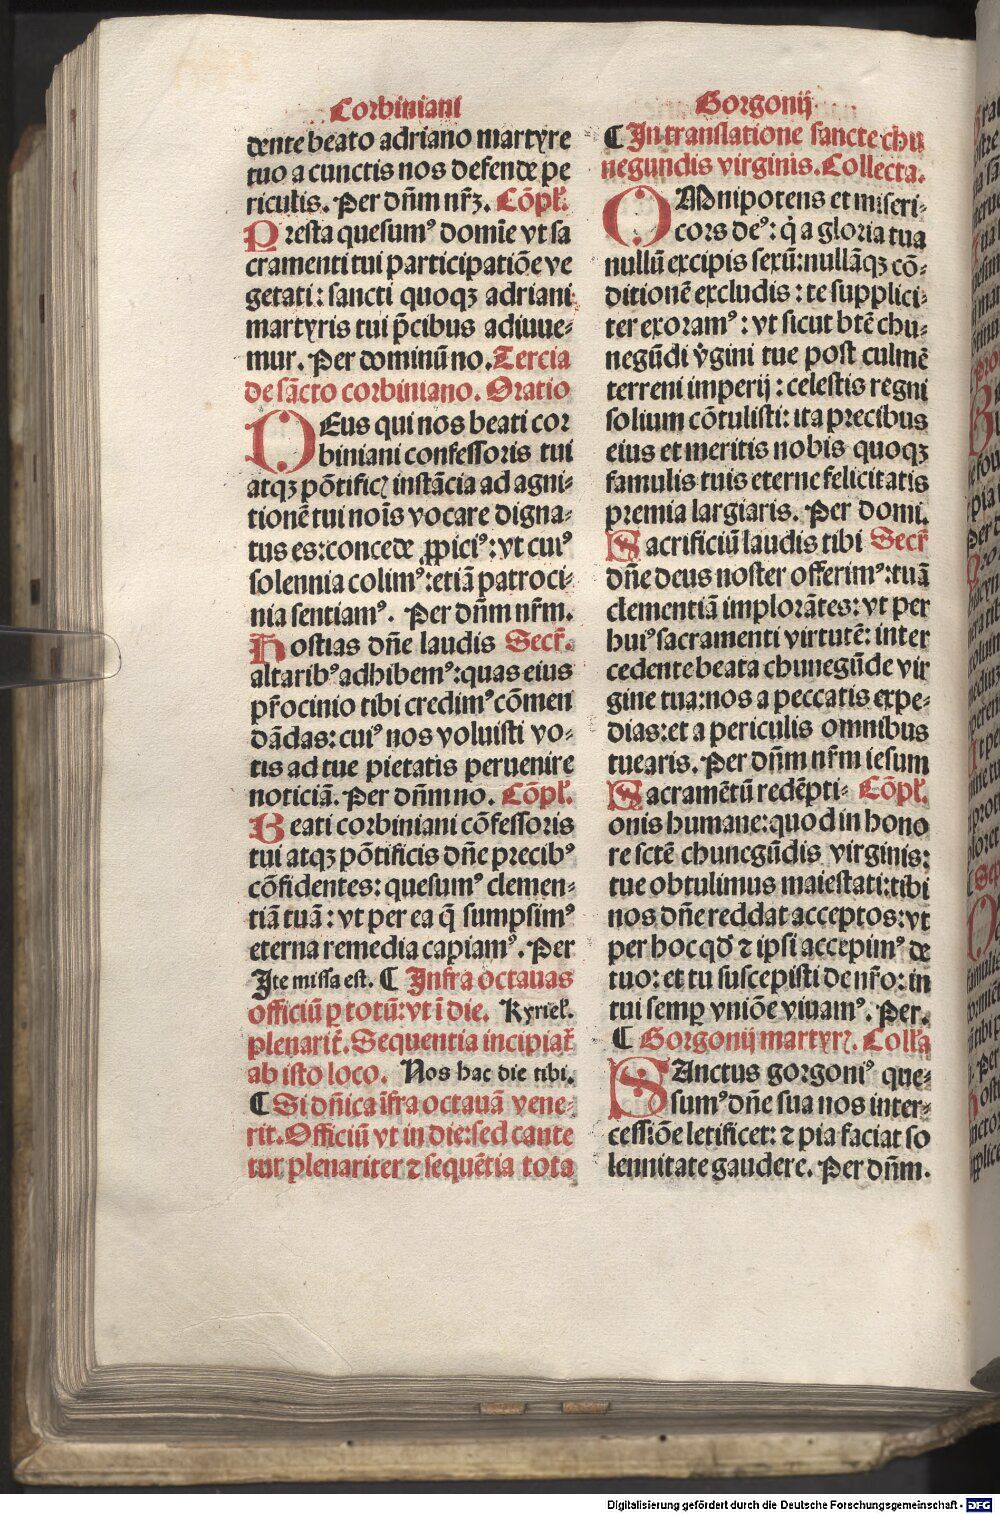 Corbiniani
dente beato adriano martyre
tuo a cunctis nos defende pe
riculis. Per dñm nr̃ꝫ. Cõpl'.
Presta quesumꝰ domīe vt sa
cramenti tui participatiõe ve
getati: sancti quoqꝫ adriani
martyris tui p̃cibus adiuue⸗
mur. Per dominũ no. Tercia
de sãcto corbiniano. Oratio
DEus qui nos beati cor
biniani confessoris tui
atqꝫ põtificꝭ instãcia ad agni⸗
tionẽ tui noīs vocare digna⸗
tus es: concede ꝓpiciꝰ: vt cuiꝰ
solennia colimꝰ: etiã patroci⸗
nia sentiamꝰ. Per dñm nr̃m.
Hostias dñe laudis Secr̃.
altaribꝰ adhibemꝰ: quas eius
pr̃ocinio tibi credimꝰ cõmen
dãdas: cuiꝰ nos voluisti vo⸗
tis ad tue pietatis peruenire
noticiã. Per dñm no. Cõpl'.
Beati corbiniani cõfessoris
tui atqꝫ põtificis dñe precibꝰ
cõfidentes: quesumꝰ clemen⸗
tiã tuã: vt per ea q̃ sumpsimꝰ
eterna remedia capiamꝰ. Per
Ite missa est. ¶ Infra octauas
officiũ ꝑ totũ: vt ĩ die. Kyriel'.
plenarit̃. Sequentia incipiat̃
ab isto loco. Nos hac die tibi.
¶ Si dñica ĩfra octauã vene⸗
rit. Officiũ vt in die: sed cante
tur plenariter ⁊ sequẽtia tota
Gorgonij
¶ In translatione sancte chu
negundis virginis. Collecta.
OMnipotens et miseri⸗
cors deꝰ: q̇ a gloria tua
nullũ excipis sexũ: nullãqꝫ cõ⸗
ditionẽ excludis: te supplici⸗
ter exoramꝰ: vt sicut btẽ chu⸗
negũdi v̇gini tue post culmẽ
terreni imperij: celestis regni
solium cõtulisti: ita precibus
eius et meritis nobis quoqꝫ
famulis tuis eterne felicitatis
premia largiaris. Per domi.
Sacrificiũ laudis tibi Secr̃
dñe deus noster offerimꝰ: tuã
clementiã implorãtes: vt per
huiꝰ sacramenti virtutẽ: inter
cedente beata chunegũde vir
gine tua: nos a peccatis expe⸗
dias: et a periculis omnibus
tuearis. Per dñm nr̃m iesum
Sacramẽtũ redẽpti⸗ Cõpl'.
onis humane: quod in hono
re sctẽ chunegũdis virginis:
tue obtulimus maiestati: tibi
nos dñe reddat acceptos: vt
per hoc qđ ⁊ ipsi accepimꝰ de
tuo: et tu suscepisti de nr̃o: in
tui semꝑ vniõe viuamꝰ. Per.
¶ Gorgonij martyrꝭ. Coll'a
SAnctus gorgoniꝰ que⸗
sumꝰ dñe sua nos inter⸗
cessiõe letificet: ⁊ pia faciat so
lennitate gaudere. Per dñm.
Digitalisierung gefördert durch die Deutsche Forschungsgemeinschaft - DFG